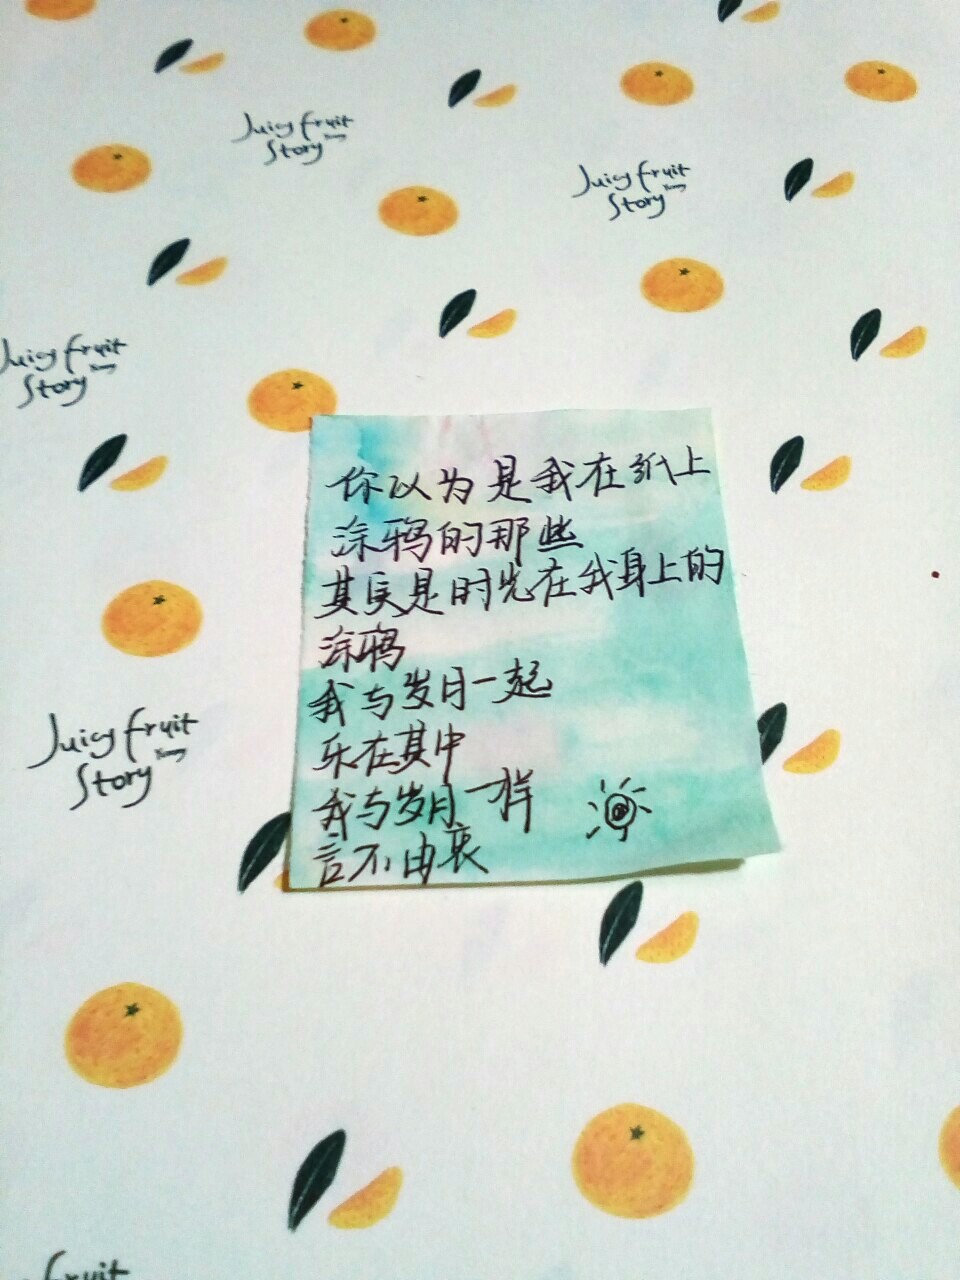 Juicy fruit
Story
Juicy fruit
Story
Juicy fruit
Story
你以为是我在纸上
涂鸦的那些
其实是时光在我身上的
涂鸦
我与岁月一起
乐在其中
我与岁月一样
言不由衷
Juicy fruit
Story
fruit